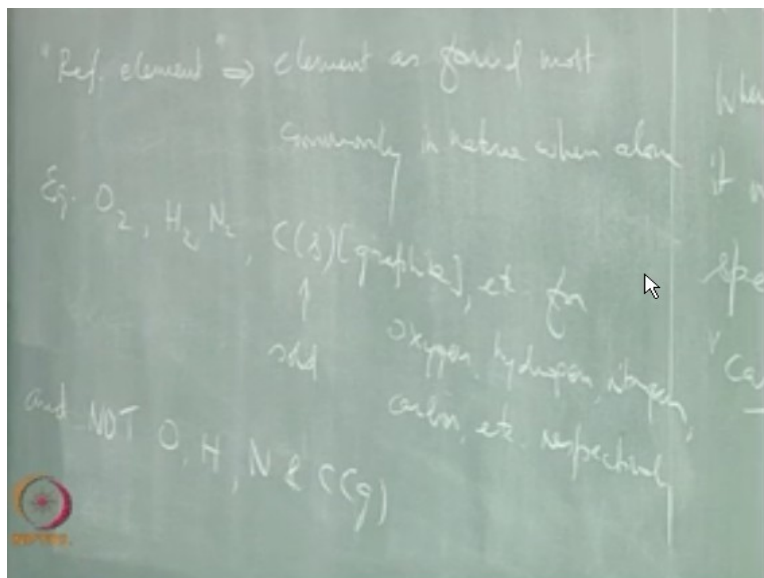 "Ref. element" ⇒ element as found most
commonly in nature when alone
Eg. O₂, H₂, N₂, C(s) [graphite], etc for
↑
solid
oxygen, hydrogen, nitrogen,
carbon, etc. respectively
and NOT O, H, N & C(g)
When
it
spe
"Ca
NPTEL